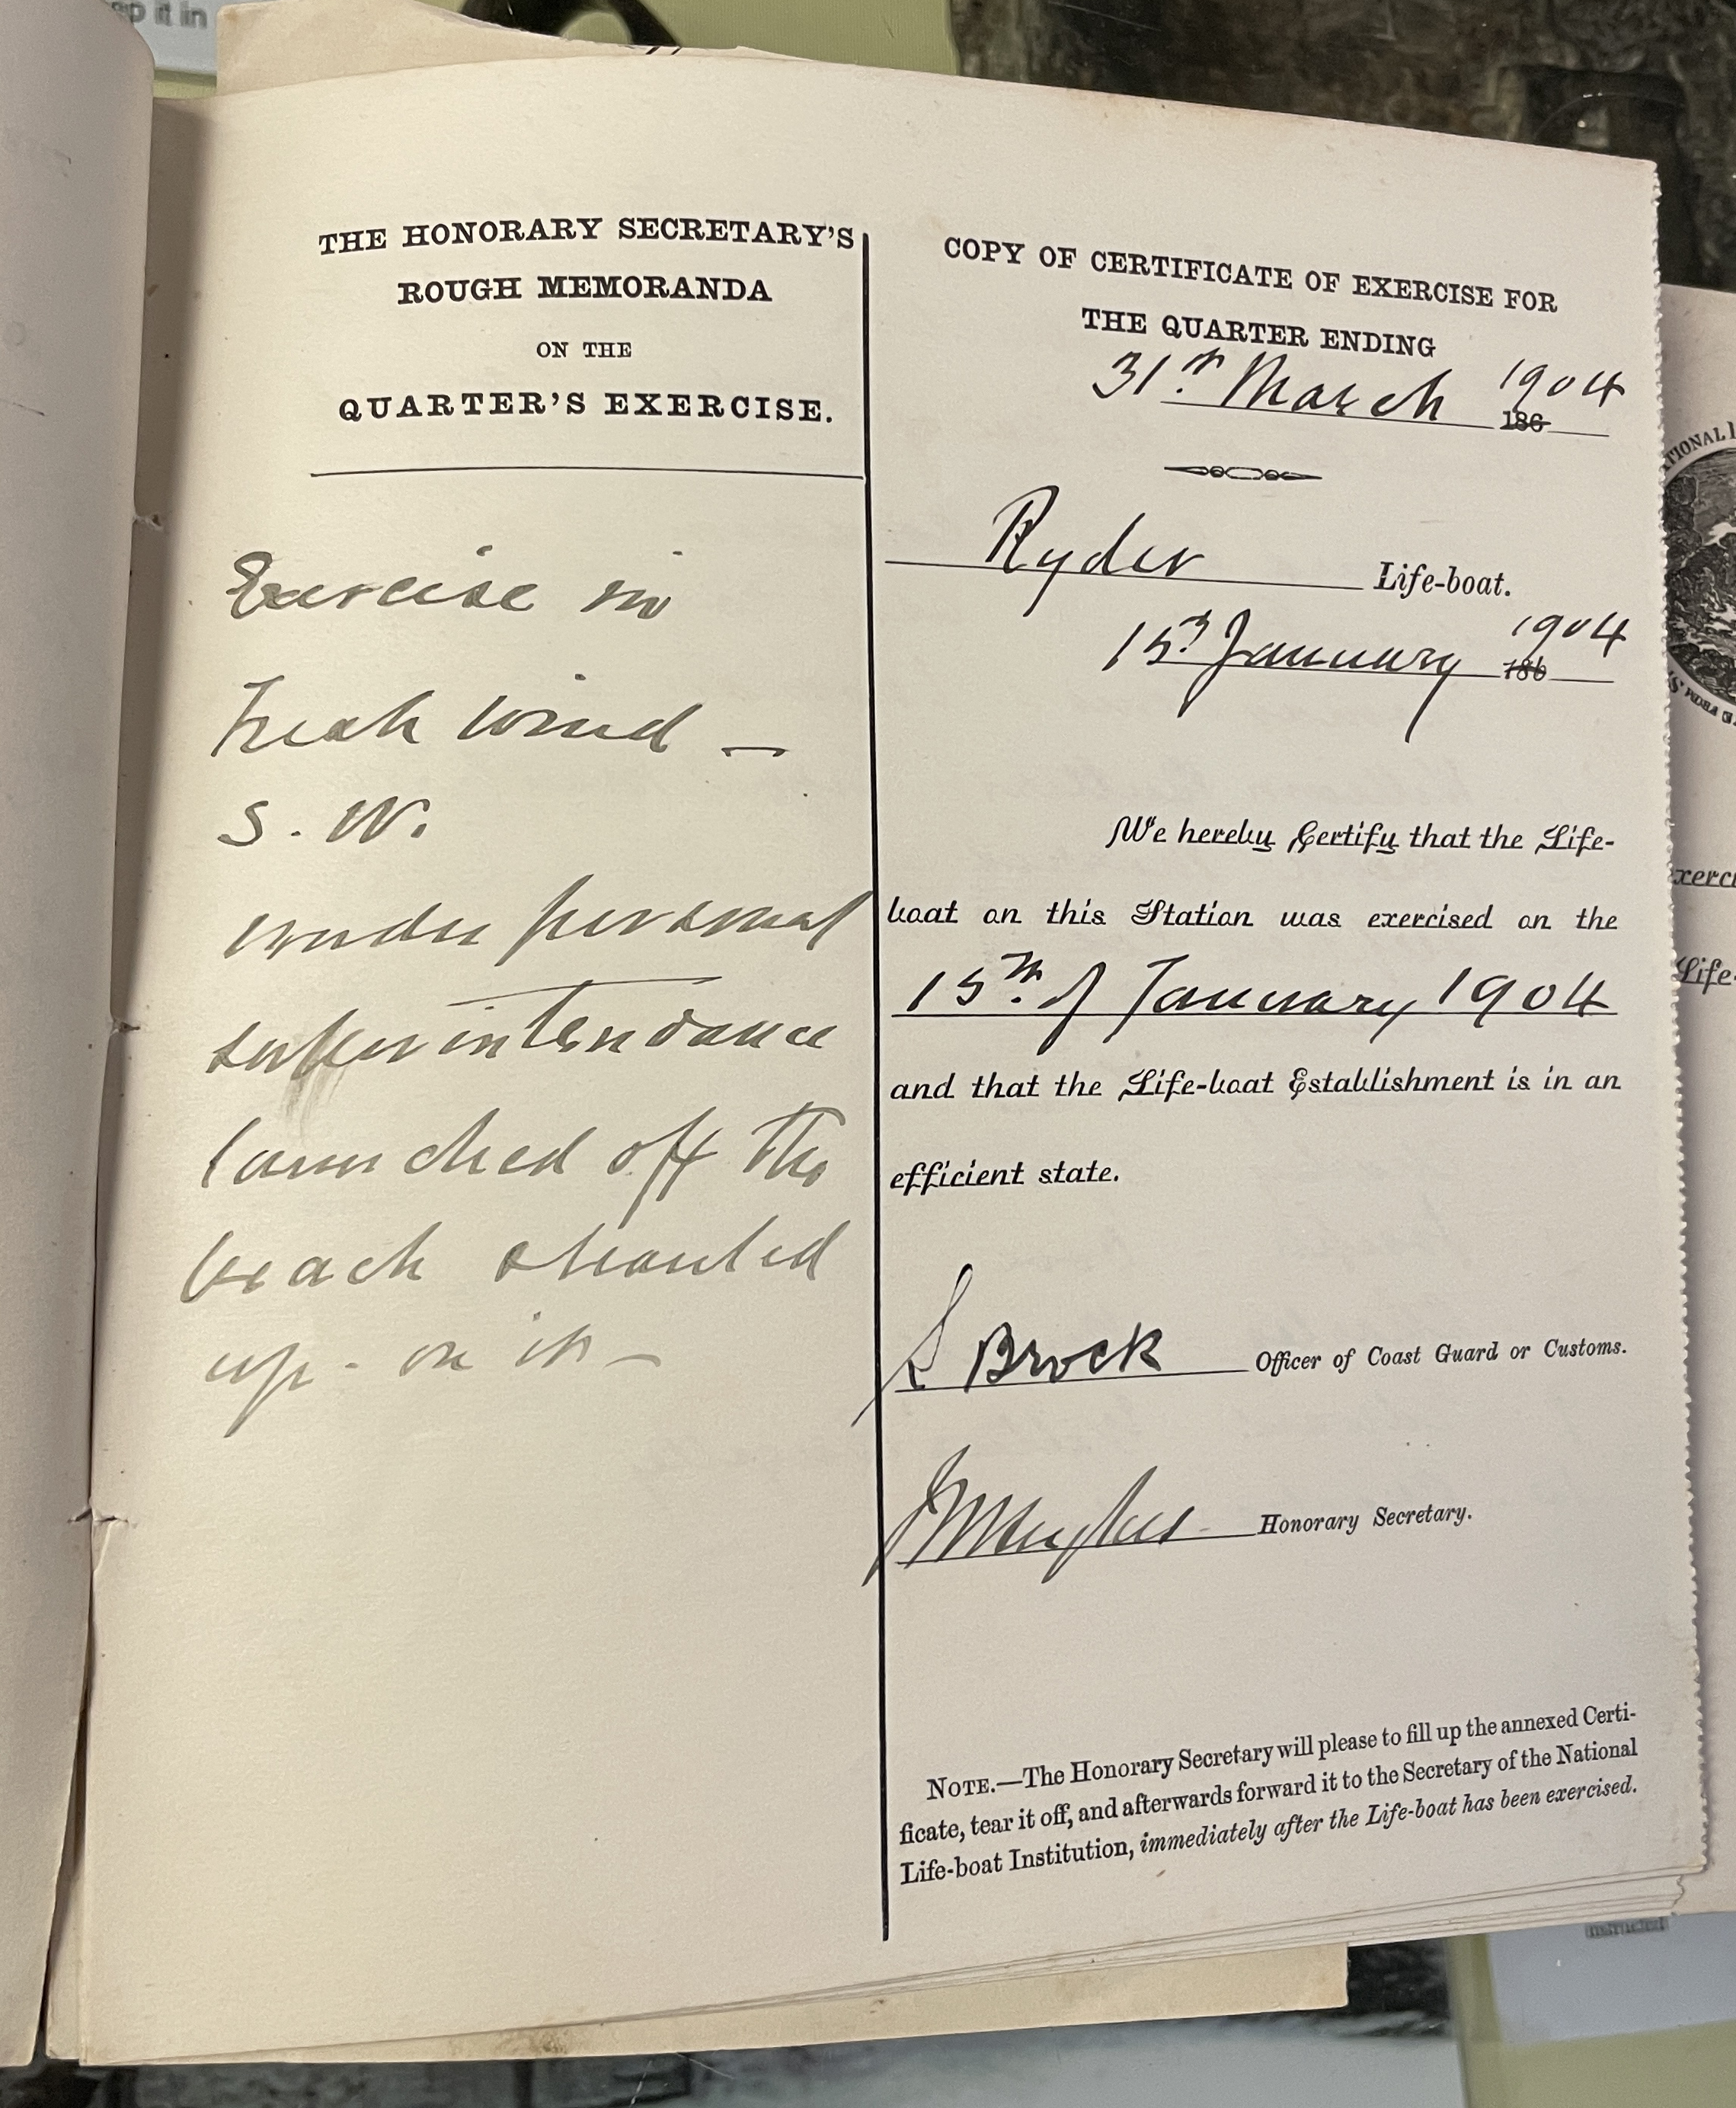 THE HONORARY SECRETARY'S
ROUGH MEMORANDA
ON THE
QUARTER'S EXERCISE.
Exercise in
Fresh wind —
S. W.
under personal
superintendance
launched off the
beach & hauled
up - on it —
COPY OF CERTIFICATE OF EXERCISE FOR
THE QUARTER ENDING
31st March 1904
186
Ryder Life-boat.
15th January 1904
186
We hereby Certify that the Life-
boat on this Station was exercised on the
15th of January 1904
and that the Life-boat Establishment is in an
efficient state.
S Brock Officer of Coast Guard or Customs.
Hughes Honorary Secretary.
NOTE.—The Honorary Secretary will please to fill up the annexed Certi-
ficate, tear it off, and afterwards forward it to the Secretary of the National
Life-boat Institution, immediately after the Life-boat has been exercised.